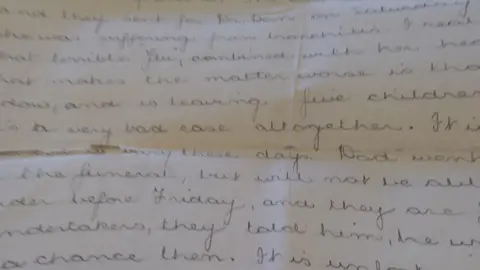 and they sent for Dr Dan on Saturday
she was suffering from bronchitis. I need
that terrible 'flu, combined with her hea
hat makes the matter worse is tha
dow, and is leaving five children
is a very bad case altogether. It is
these days. Dad went
the funeral, but will not be abl
der before Friday, and they are
ndertakers, they told him, he w
a chance then. It is